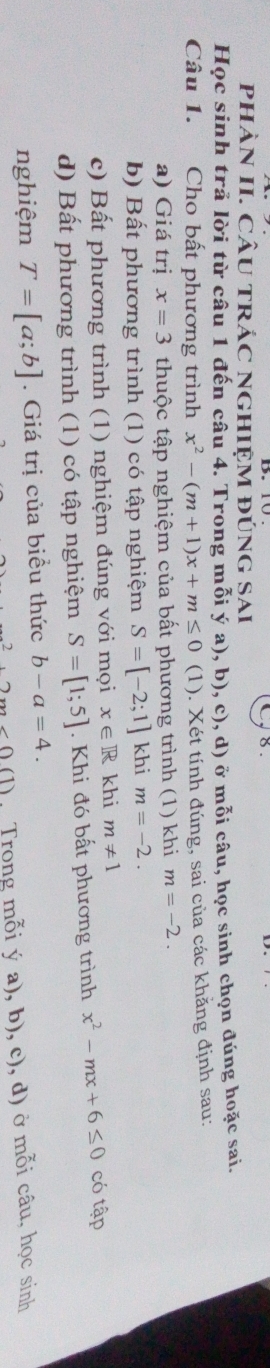 A. 9. B. 10. C. 8. D. 7.
PHẦN II. CÂU TRẮC NGHIỆM ĐÚNG SAI
Học sinh trả lời từ câu 1 đến câu 4. Trong mỗi ý a), b), c), d) ở mỗi câu, học sinh chọn đúng hoặc sai.
Câu 1. Cho bất phương trình x² − (m + 1)x + m ≤ 0 (1). Xét tính đúng, sai của các khẳng định sau:
a) Giá trị x = 3 thuộc tập nghiệm của bất phương trình (1) khi m = −2.
b) Bất phương trình (1) có tập nghiệm S = [−2;1] khi m = −2.
c) Bất phương trình (1) nghiệm đúng với mọi x ∈ ℝ khi m ≠ 1
d) Bất phương trình (1) có tập nghiệm S = [1;5]. Khi đó bất phương trình x² − mx + 6 ≤ 0 có tập
nghiệm T = [a;b]. Giá trị của biểu thức b − a = 4.
m² + 2m ≤ 0,(1). Trong mỗi ý a), b), c), d) ở mỗi câu, học sinh